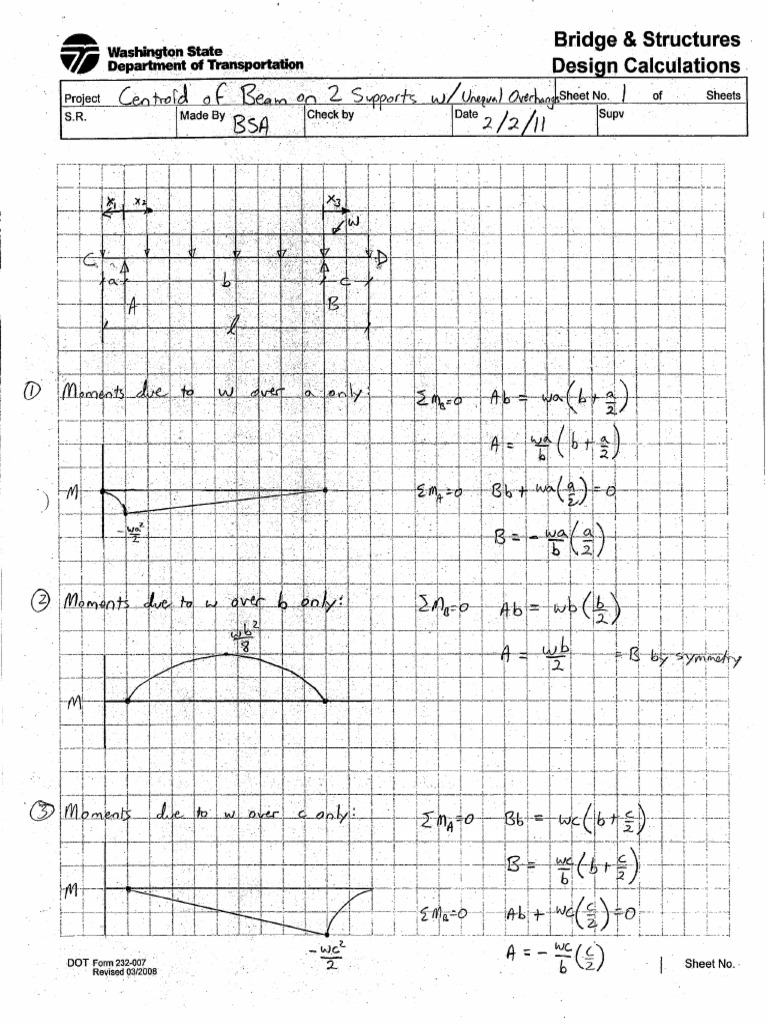 Washington State
Department of Transportation
Bridge & Structures
Design Calculations
Project Centroid of Beam on 2 Supports w/ Unequal Overhangs Sheet No. 1 of Sheets
S.R. Made By BSA Check by Date 2/2/11 Supv
x₁ x₂ x₃
w
C D
a b c
A B
l
① Moments due to w over a only: ΣM_B=0 Ab = wa(b + a/2)
A = wa/b (b + a/2)
M ΣM_A=0 Bb + wa(a/2) = 0
-wa²/2
B = - wa/b (a/2)
② Moments due to w over b only: ΣM_B=0 Ab = wb(b/2)
wb²/8
A = wb/2 = B by symmetry
M
③ Moments due to w over c only: ΣM_A=0 Bb = wc(b + c/2)
B = wc/b (b + c/2)
M
ΣM_B=0 Ab + wc(c/2) = 0
-wc²/2
A = - wc/b (c/2)
DOT Form 232-007
Revised 03/2008
1 Sheet No.